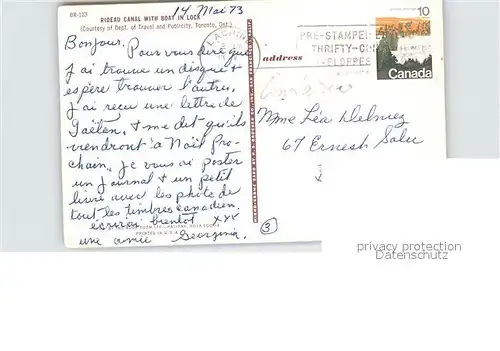 BR-113
14 Mai 73
RIDEAU CANAL WITH BOAT IN LOCK
(Courtesy of Dept. of Travel and Publicity, Toronto, Ont.)
Bonjour.
Pour vous dire que
j'ai trouve un disque +
espère trouver l'autre.
J'ai recu une lettre de
Gaëten, + me dit qu'ils
viendront à Noël Pro-
chain. Je vous ai poster
un Journal + un petit
livre avec les photo de
tout les timbres canadien.
ecrirai bientot xxx
une amie Georgina.
HALIFAX, NOVA SCOTIA
PRINTED IN U.S.A.
LACHINE
PRE-STAMPED
THRIFTY-
VELOPPES
10
Canada
address
Mme Léa Delmez
67 Ernest Salu
3
privacy protection
Datenschutz